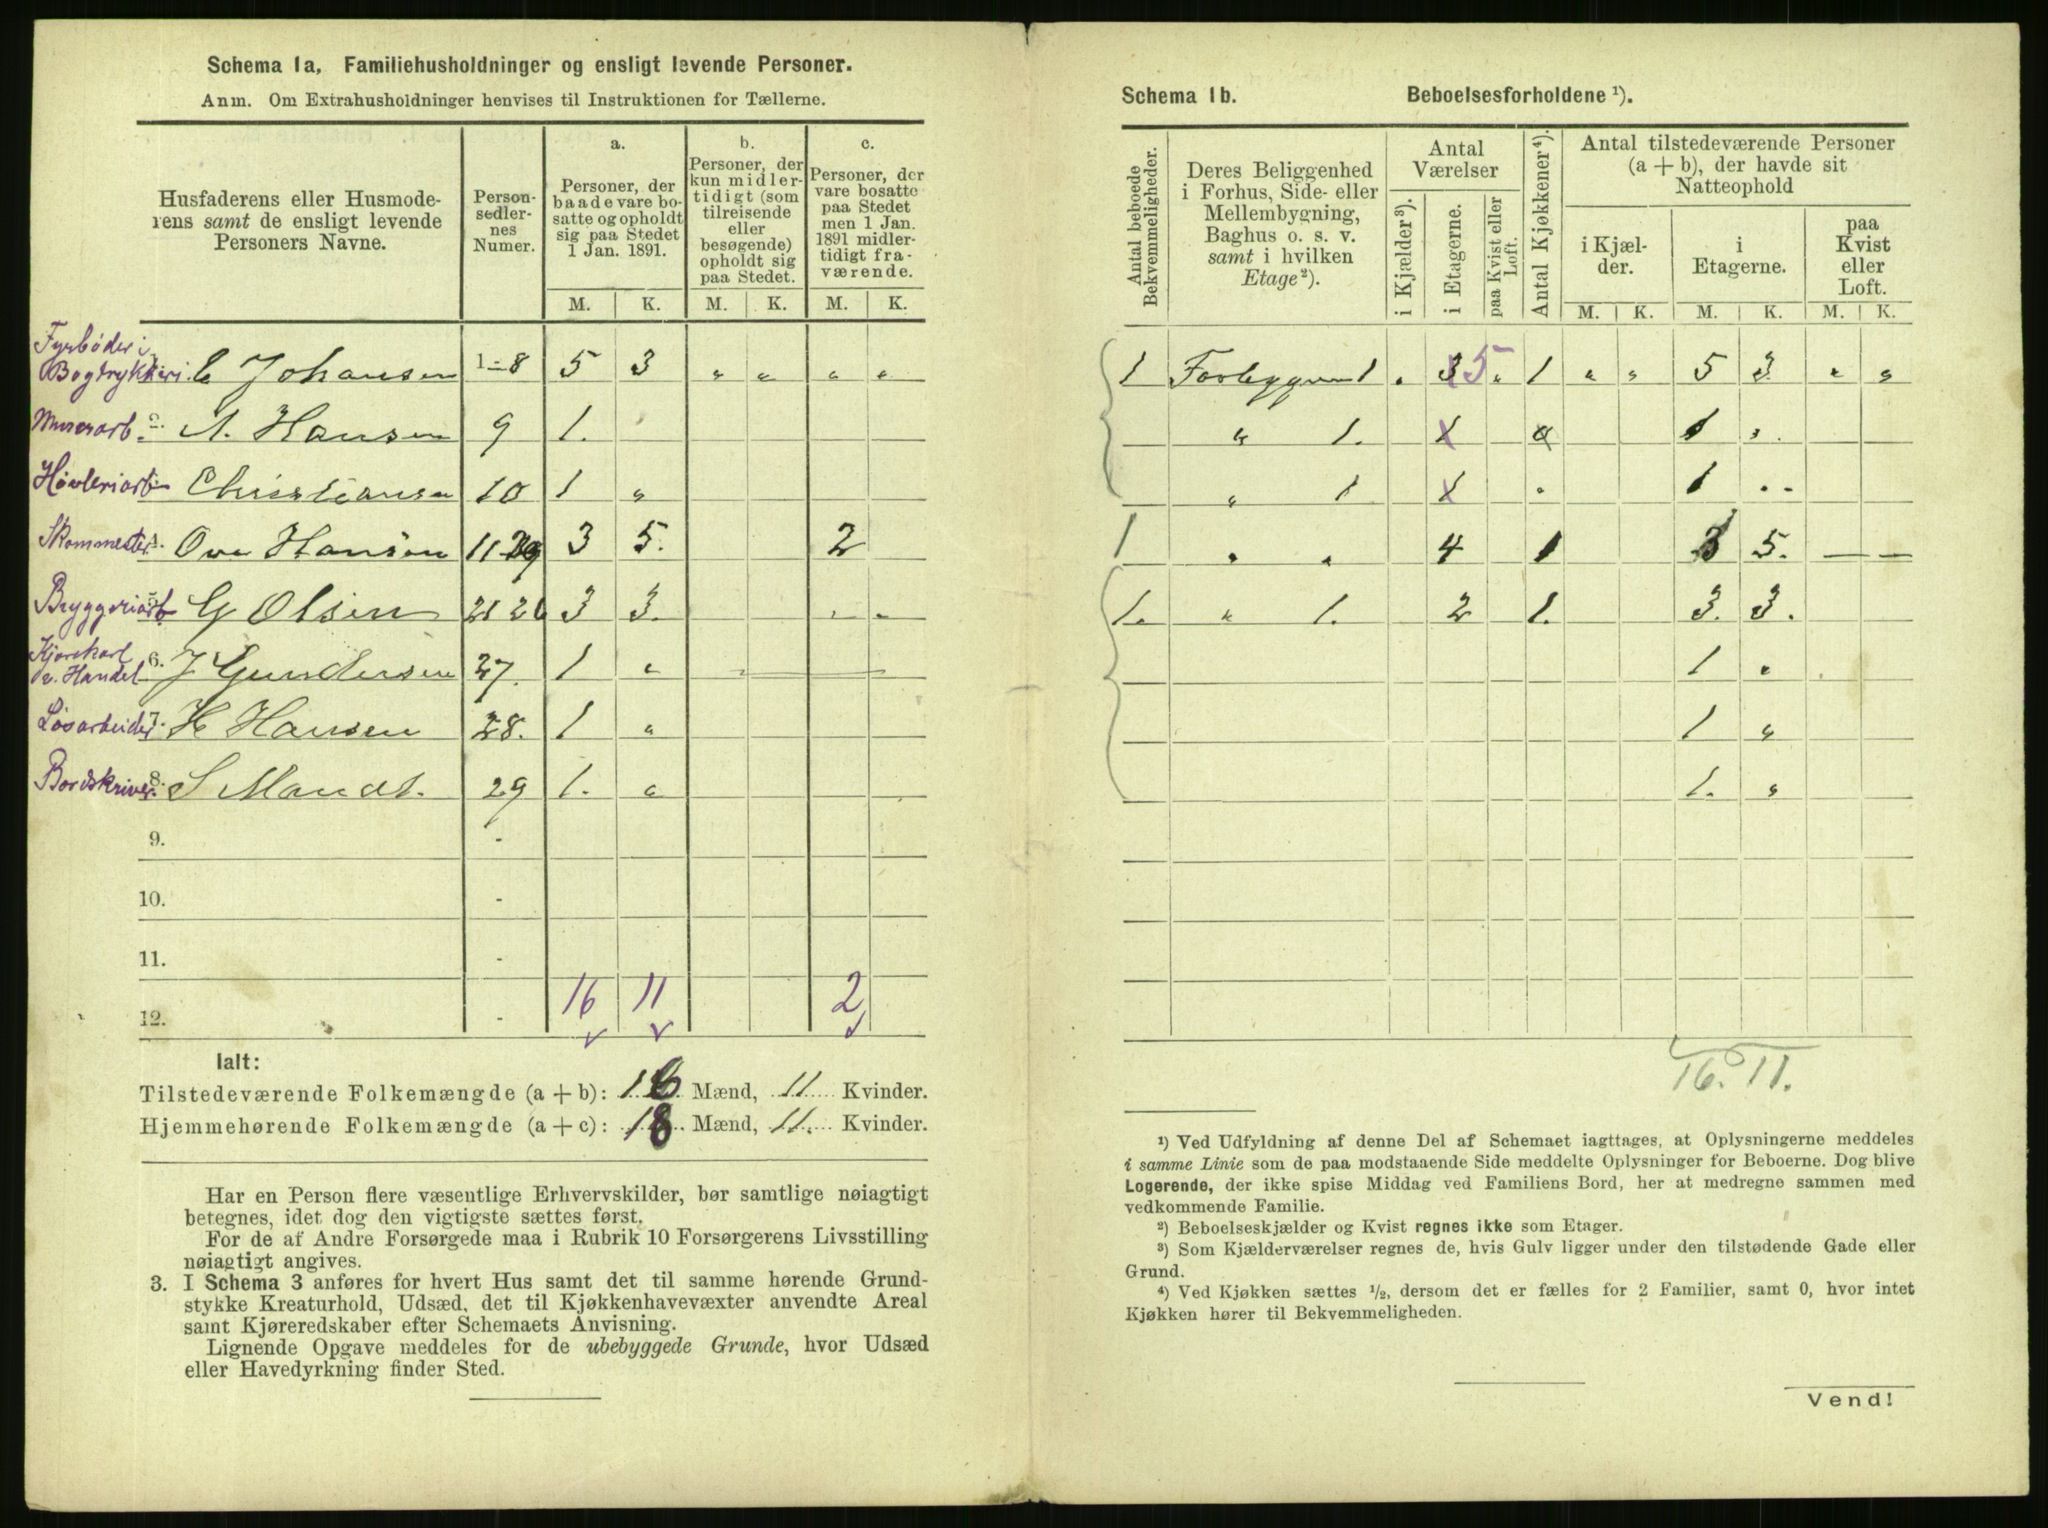 Schema 1a. Familiehusholdninger og ensligt levende Personer.
Anm. Om Extrahusholdninger henvises til Instruktionen for Tællerne.
Husfaderens eller Husmode-
rens samt de ensligt levende
Personers Navne.
Person-
sedler-
nes
Numer.
a.
Personer, der
baade vare bo-
satte og opholdt
sig paa Stedet
1 Jan. 1891.
b.
Personer, der
kun midler-
tidigt (som
tilreisende
eller
besøgende)
opholdt sig
paa Stedet.
c.
Personer, der
vare bosatte
paa Stedet
men 1 Jan.
1891 midler-
tidigt fra-
værende.
M. K. M. K. M. K.
Fyrbøder i
Bogtrykkeri C Johansen 1-8 5 3 „ „ „ „
Murerarb 2. A. Hansen 9 1.
Høvleriarb Christiansen 10 1 „
Skommester 4. Ove Hansen 11 3 5. 2
Bryggeriarb 5. G Olsen 21 26 3 3. - -
Kjørekarl
v. Handel 6. J Gundersen 27. 1 „
Løsarbeider 7. H Hansen 28. 1 „
Bordskriver 8. S Mandt. 29 1. „
9. -
10. -
11. -
16 11 2
12. -
Ialt:
Tilstedeværende Folkemængde (a + b): 16 Mænd, 11 Kvinder.
Hjemmehørende Folkemængde (a + c): 18 Mænd, 11. Kvinder.
Har en Person flere væsentlige Erhvervskilder, bør samtlige nøiagtigt
betegnes, idet dog den vigtigste sættes først.
For de af Andre Forsørgede maa i Rubrik 10 Forsørgerens Livsstilling
nøiagtigt angives.
3. I Schema 3 anføres for hvert Hus samt det til samme hørende Grund-
stykke Kreaturhold, Udsæd, det til Kjøkkenhavevæxter anvendte Areal
samt Kjøreredskaber efter Schemaets Anvisning.
Lignende Opgave meddeles for de ubebyggede Grunde, hvor Udsæd
eller Havedyrkning finder Sted.
Schema 1b. Beboelsesforholdene ¹).
Antal beboede
Bekvemmeligheder.
Deres Beliggenhed
i Forhus, Side- eller
Mellembygning,
Baghus o. s. v.
samt i hvilken
Etage ²).
Antal
Værelser
i Kjælder ³).
i Etagerne.
paa Kvist eller
Loft.
Antal Kjøkkener ⁴).
Antal tilstedeværende Personer
(a + b), der havde sit
Natteophold
i Kjæl-
der.
i
Etagerne.
paa
Kvist
eller
Loft.
M. K. M. K. M. K.
1 Forbyggn 1. . 3 5. „ 1 „ „ 5 3 „ „
„ 1. 1 1 „
„ 1 1 „ 1 „
1 „ „ 4 1 3 5. — —
1. „ 1. 2 1. 3. 3.
1 „
1 „
1. „
16. 11.
¹) Ved Udfyldning af denne Del af Schemaet iagttages, at Oplysningerne meddeles
i samme Linie som de paa modstaaende Side meddelte Oplysninger for Beboerne. Dog blive
Logerende, der ikke spise Middag ved Familiens Bord, her at medregne sammen med
vedkommende Familie.
²) Beboelseskjælder og Kvist regnes ikke som Etager.
³) Som Kjælderværelser regnes de, hvis Gulv ligger under den tilstødende Gade eller
Grund.
⁴) Ved Kjøkken sættes ½, dersom det er fælles for 2 Familier, samt 0, hvor intet
Kjøkken hører til Bekvemmeligheden.
Vend!